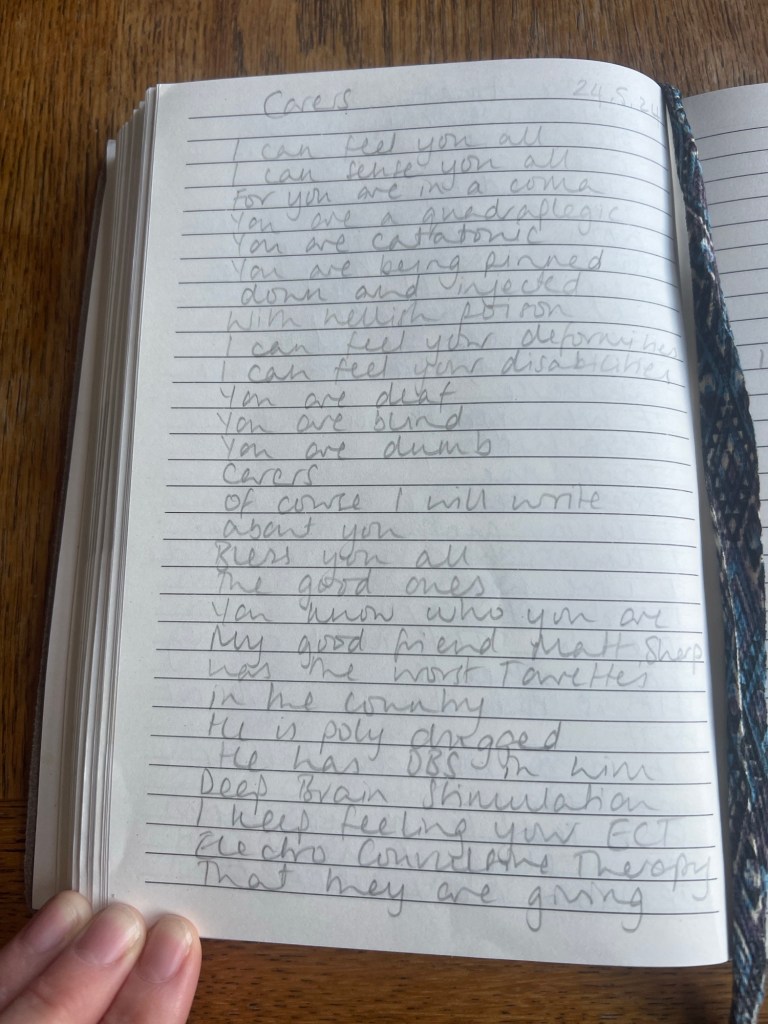 Carers 24.5.2
I can feel you all
I can sense you all
For you are in a coma
You are a quadraplegic
You are catatonic
You are being pinned
down and injected
With hellish poison
I can feel your deformities
I can feel your disabilities
You are deaf
You are blind
You are dumb
Carers
Of course I will write
about you
Bless you all
The good ones
You know who you are
My good friend Matt
has the worst Tourettes
in the country
He is poly drugged
He has DBS in him
Deep Brain Stimulation
I keep feeling your ECT
Electro Convulsive Therapy
That they are giving